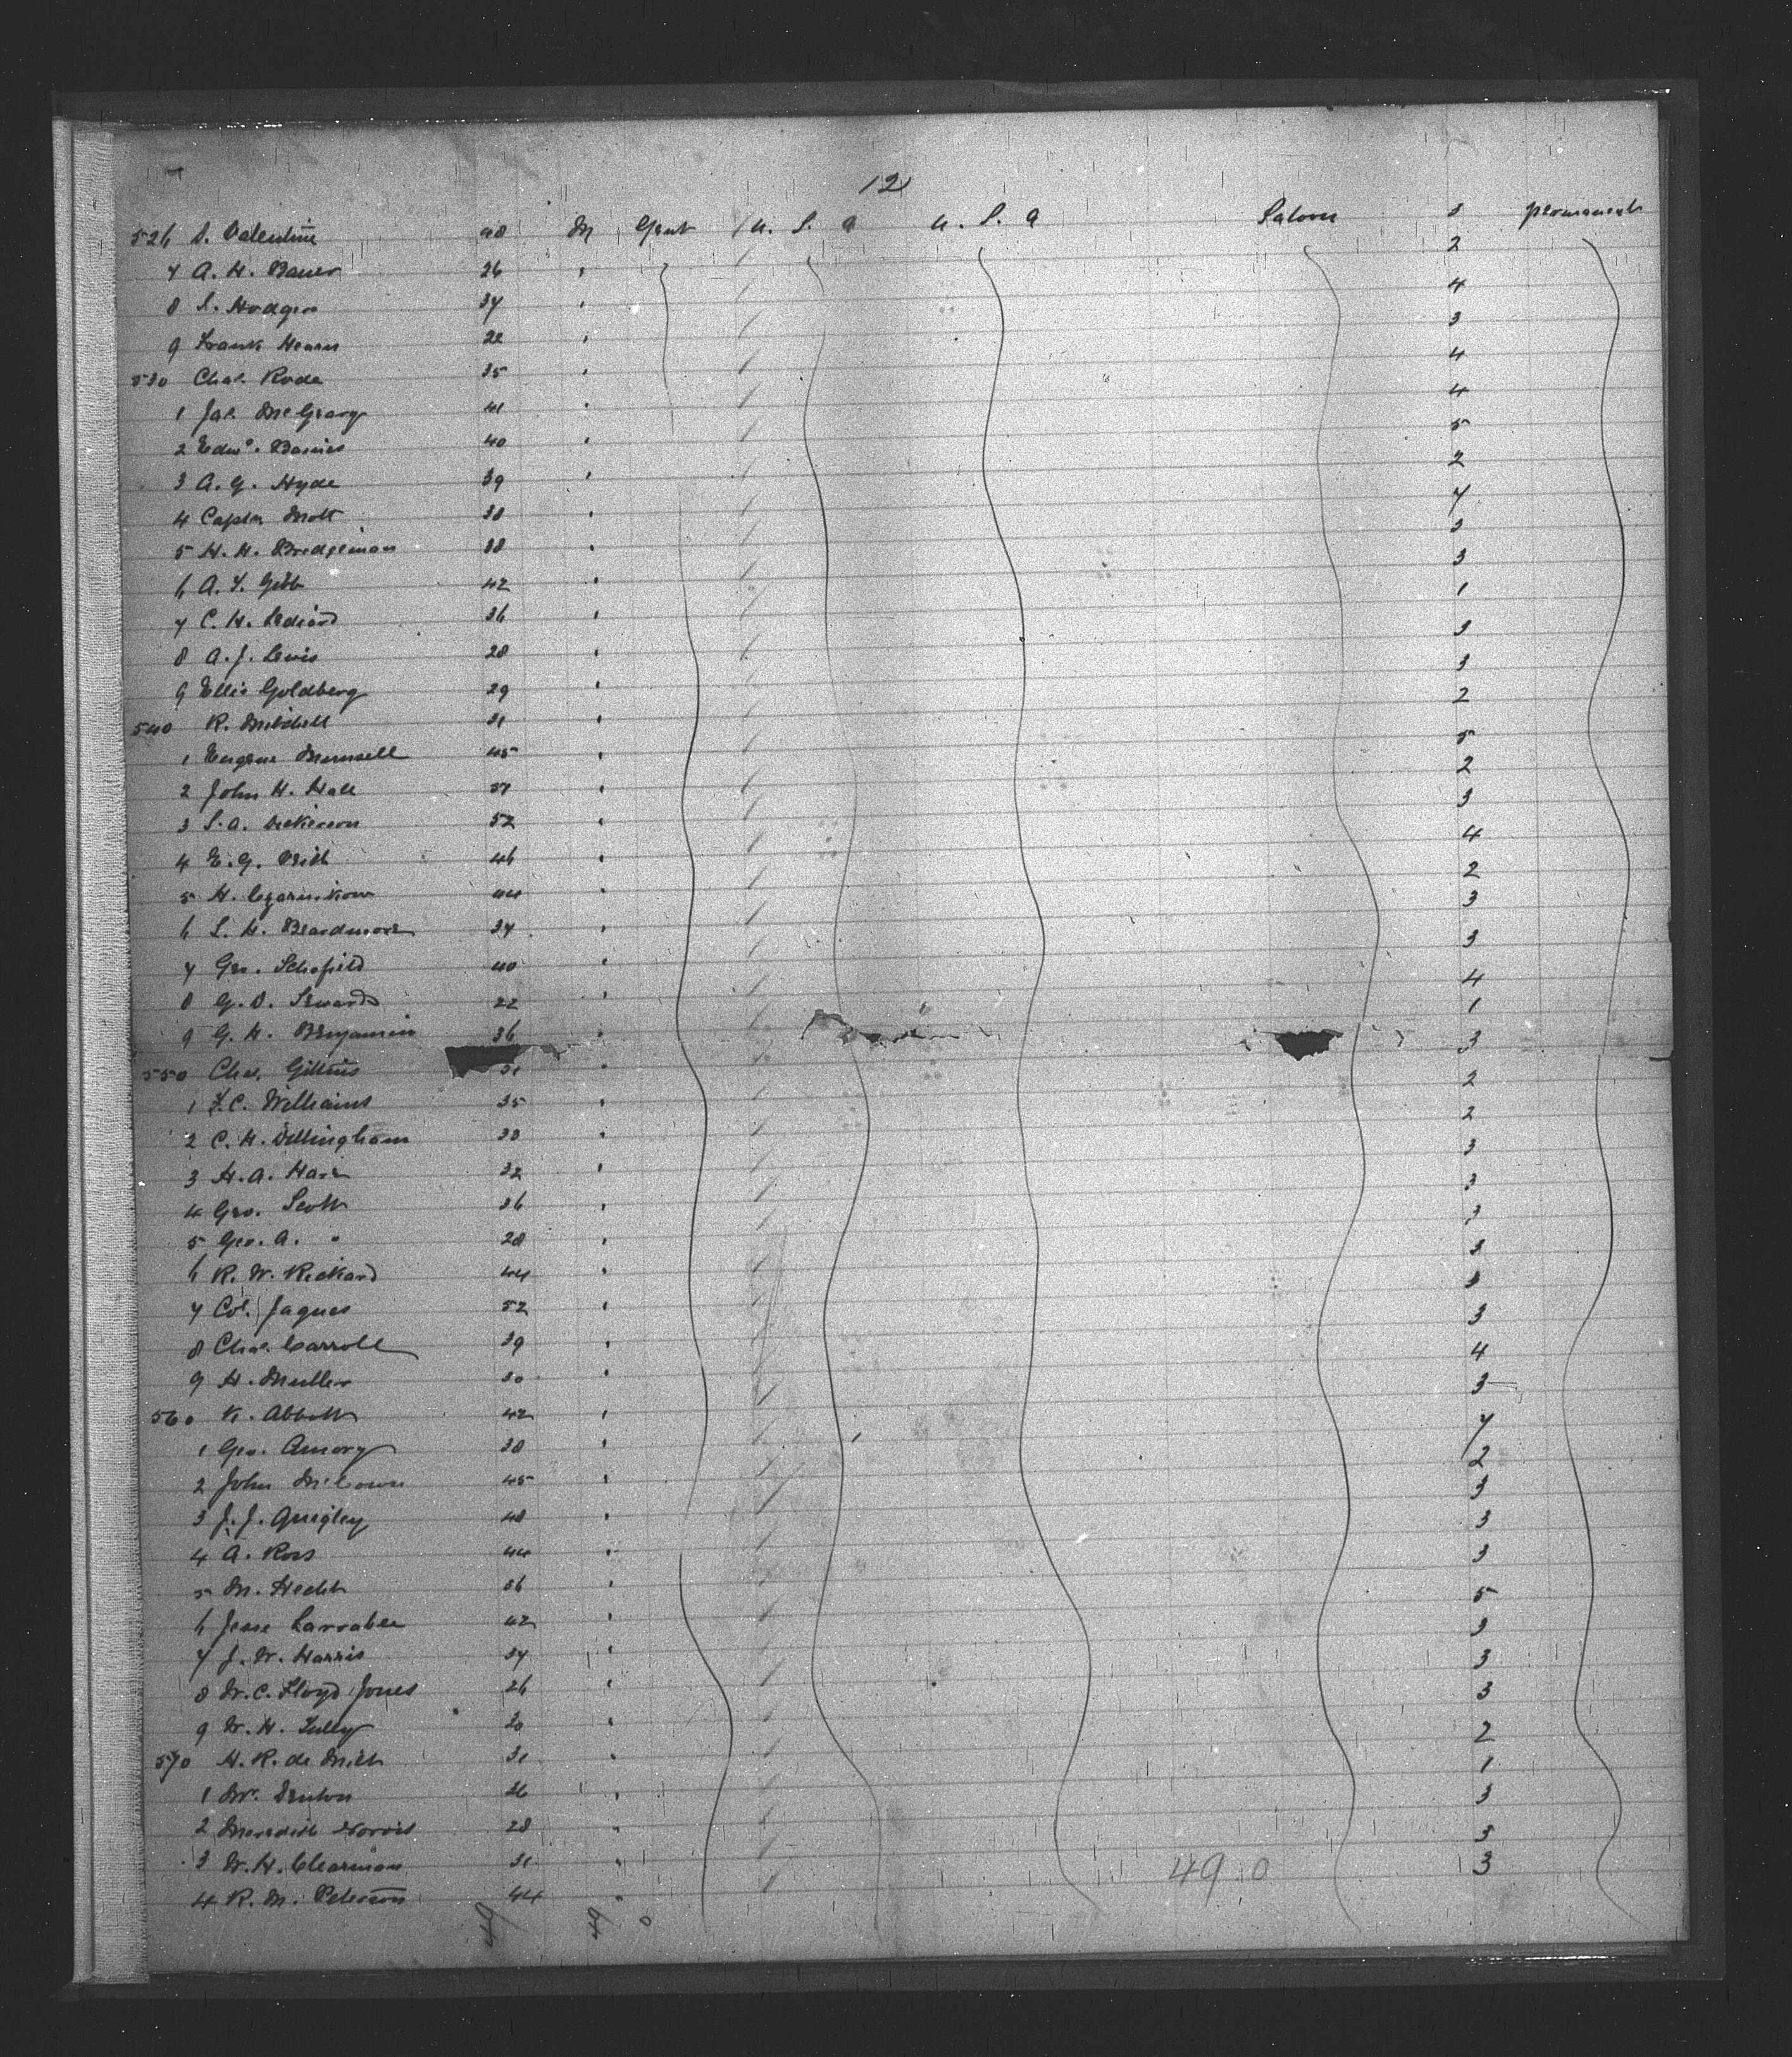 12
526 S. Valentine 40 M Gent / U. S. A U. S. A Saloon 3 permanent
7 A. H. Bauer 26 " / 2
8 S. Hodges 34 " / 4
9 Frank Hearn 22 " / 3
530 Chas. Rode 35 " / 4
1 Jas. McGeary 41 " / 4
2 Edwd. Barnes 40 " / 5
3 A. G. Hyde 39 " / 2
4 Captn Mott 38 " / 7
5 H. H. Bridgeman 38 " / 3
6 A. Y. Gibb 42 " / 3
7 C. H. Lediard 36 " / 1
8 A. J. Lewis 28 " / 3
9 Ellis Goldberg 29 " / 3
540 R. Mitchell 31 " / 2
1 Eugene Munsell 45 " / 5
2 John H. Hall 37 " / 2
3 S. A. Dickerson 52 " / 3
4 E. G. 46 " / 4
5 H. Czarnikow 44 " / 2
6 S. H. Beardmore 34 " / 3
7 Geo. Schofield 40 " / 3
8 G. D. Seward 22 " / 4
9 G. H. Benjamin 36 " / 1
550 Chas. 31 " / 3
1 F. C. Williams 35 " / 2
2 C. H. Dillingham 38 " / 2
3 H. A. Hare 32 " / 3
4 Geo. Scott 36 " / 3
5 Geo. A. " 28 " / 3
6 R. W. Rickard 44 " / 3
7 Col. Jaques 52 " / 3
8 Chas. Carroll 39 " / 3
9 H. Muller 30 " / 4
560 K. Abbott 42 " / 3
1 Geo. Amory 38 " / 7
2 John McCown 45 " / 2
3 J. J. Quigley 48 " / 3
4 A. Ross 44 " / 3
5 M. Hecht 36 " / 3
6 Jesse Larrabee 42 " / 5
7 J. W. Harris 34 " / 3
8 W. C. Lloyd Jones 26 " / 3
9 W. H. 30 " / 3
570 H. R. de 31 " / 2
1 Mr. 26 " / 1
2 Meredith Norris 28 " / 3
3 W. H. Clearman 31 " / 3
4 R. M. Peterson 44 " / 3
49 49 0 49 0